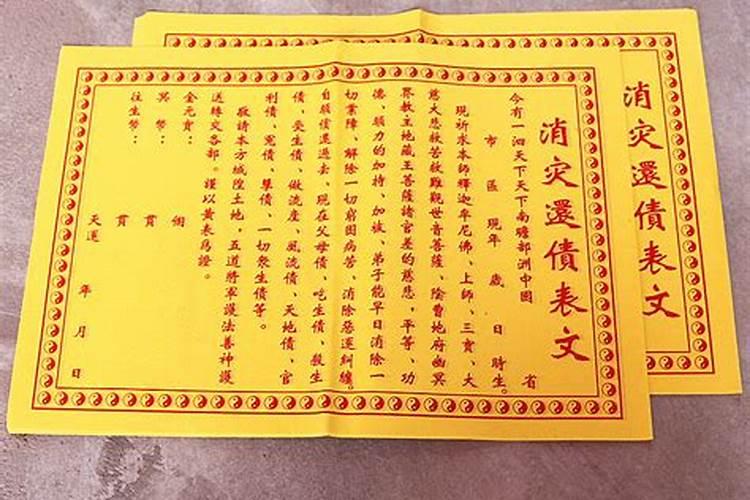 消灾還債表文
今有一泗天下天下南瞻部洲中国 省
市 區 現年 歲 日 時生。
現祈求本師釋迦牟尼佛、上師、三寶、大
慈大悲救苦救難觀世音菩薩、陰曹地府幽冥
界教主地藏王菩薩諸官差的慈悲，平等、功
德、願力的加持、加被、弟子能早日消除一
切業障、解除一切窮困病苦、消除惡運糾纏。
自願償還過去、現在父母債、吃生債、殺生
債、受生債、做流産、風流債、天地債、官
利債、冤債、孽債、一切衆生債等。
敬請本方城隍土地，五道將軍護法善神護
送轉交各部。謹以黄表爲證。
金元寳： 個
冥幣： 貫
往生幣： 貫
天運 年 月 日
消灾還債表文